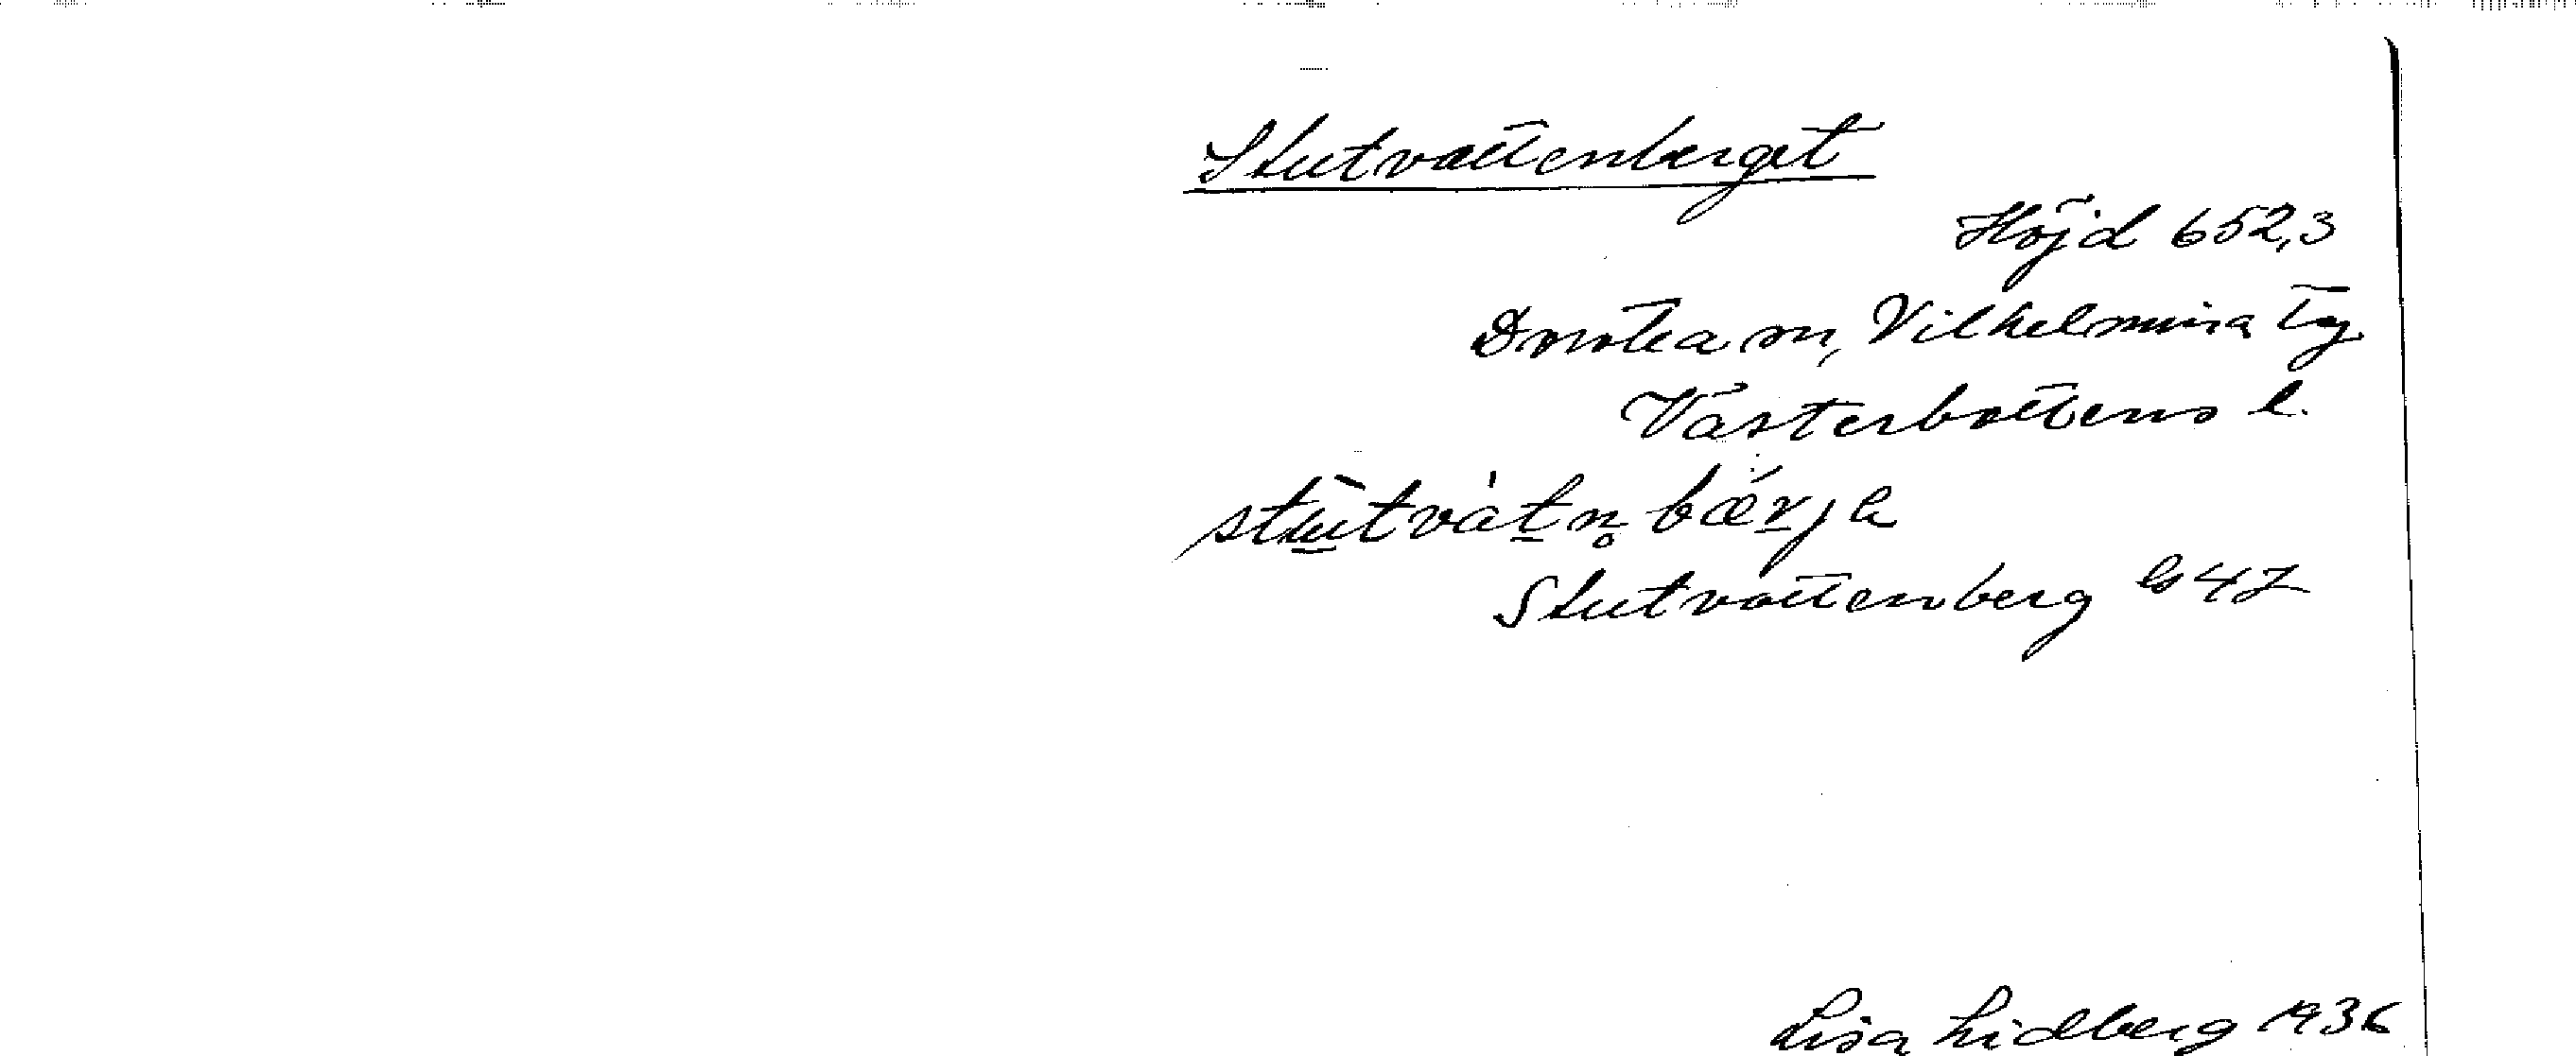 Stutvattenberget
Höjd 652,3
Dorotea sn, Vilhelmina tg
Västerbottens l.
stutvàtn̥bǽrja
Stutvattenberg G47
Lisa Lidberg 1936